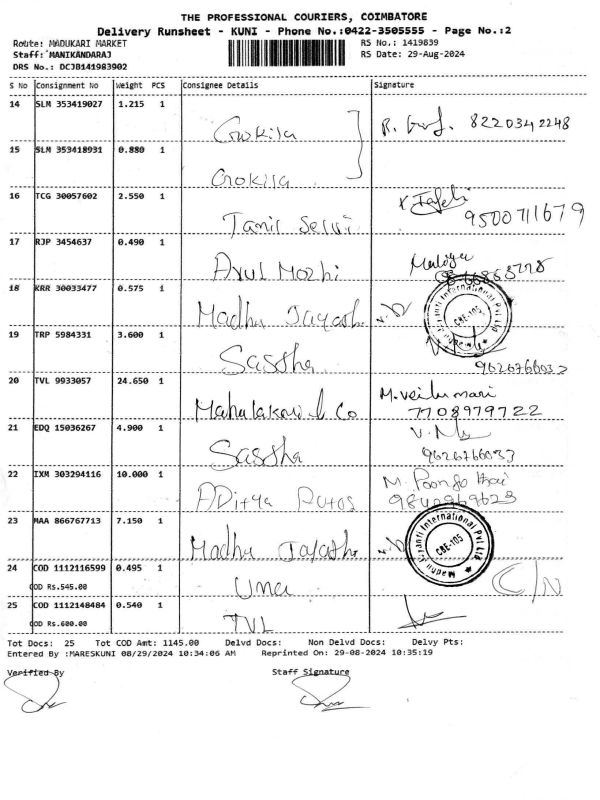 THE PROFESSIONAL COURIERS, COIMBATORE
Delivery Runsheet - KUNI - Phone No.:0422-3505555 - Page No.:2
Route: MADUKARI MARKET RS No.: 1419839
Staff: MANIKANDARAJ RS Date: 29-Aug-2024
DRS No.: DCJB141983902
S No Consignment No Weight PCS Consignee Details Signature
14 SLM 353419027 1.215 1
Gokila 8220342248
15 SLM 353418931 0.880 1
Gokila
16 TCG 30057602 2.550 1
Tamil Selvi 9500711679
17 RJP 3454637 0.490 1
Arul Mozhi
18 KRR 30033477 0.575 1
Madhu Jayanthi International Pvt Ltd
CBE-105
19 TRP 5984331 3.600 1
Sastha 9626766033
20 TVL 9933057 24.650 1
Mahalakshmi & Co M.Veilumari
7708979722
21 EDQ 15036267 4.900 1
Sastha 9626766033
22 IXM 303294116 10.000 1
ADitya Autos M. Poongothai
9842969623
23 MAA 866767713 7.150 1
Madhu Jayanthi International Pvt Ltd
CBE-105
24 COD 1112116599 0.495 1
COD Rs.545.00 Uma C/N
25 COD 1112148484 0.540 1
COD Rs.600.00 TVL
Tot Docs: 25 Tot COD Amt: 1145.00 Delvd Docs: Non Delvd Docs: Delvy Pts:
Entered By :MARESKUNI 08/29/2024 10:34:06 AM Reprinted On: 29-08-2024 10:35:19
Verified By Staff Signature